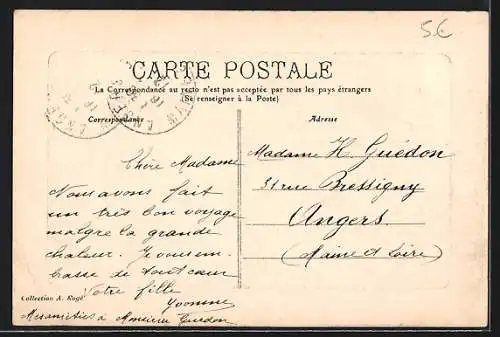 5€
CARTE POSTALE
La Correspondance au recto n'est pas acceptée par tous les pays étrangers
(Se renseigner à la Poste)
Correspondance
Adresse
Chère Madame
Nous avons fait
un très bon voyage
malgre la grande
chaleur. Je vous em-
basse de tout cœur
Votre fille
Yvonne
à Monsieur Guedon
Madame H. Guédon
31 rue Bressigny
Angers
(Maine et Loire)
Collection A. Rugé